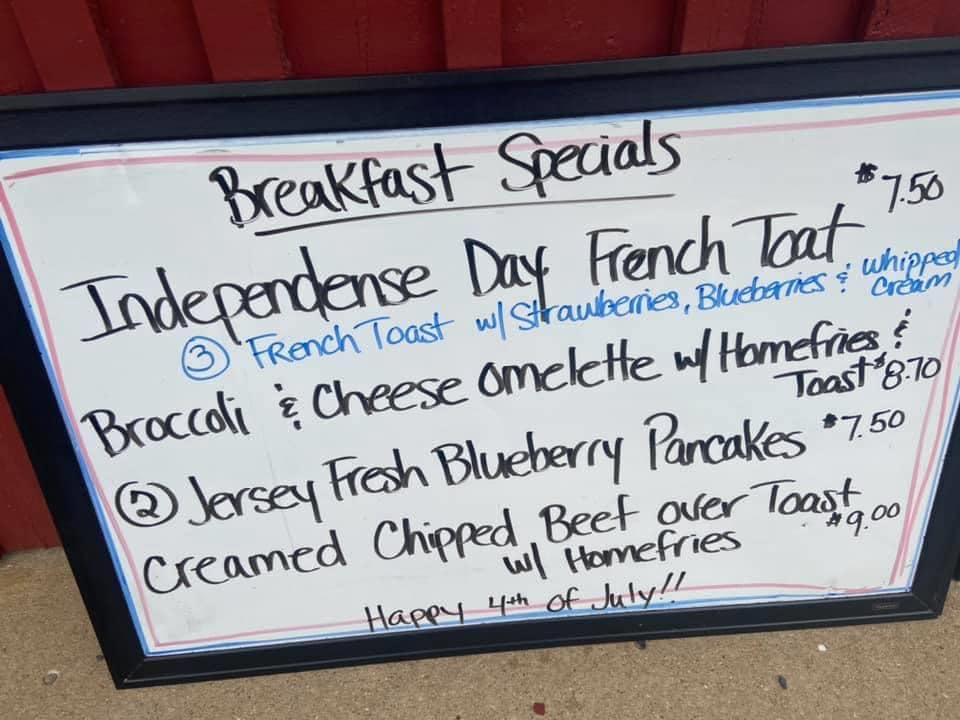 Breakfast Specials
$7.50
Independense Day French Toat
③ French Toast w/ Strawberries, Blueberries & whipped
Cream
Broccoli & Cheese Omelette w/ Homefries &
Toast $8.70
② Jersey Fresh Blueberry Pancakes $7.50
Creamed Chipped Beef over Toast
w/ Homefries $9.00
Happy 4th of July!!